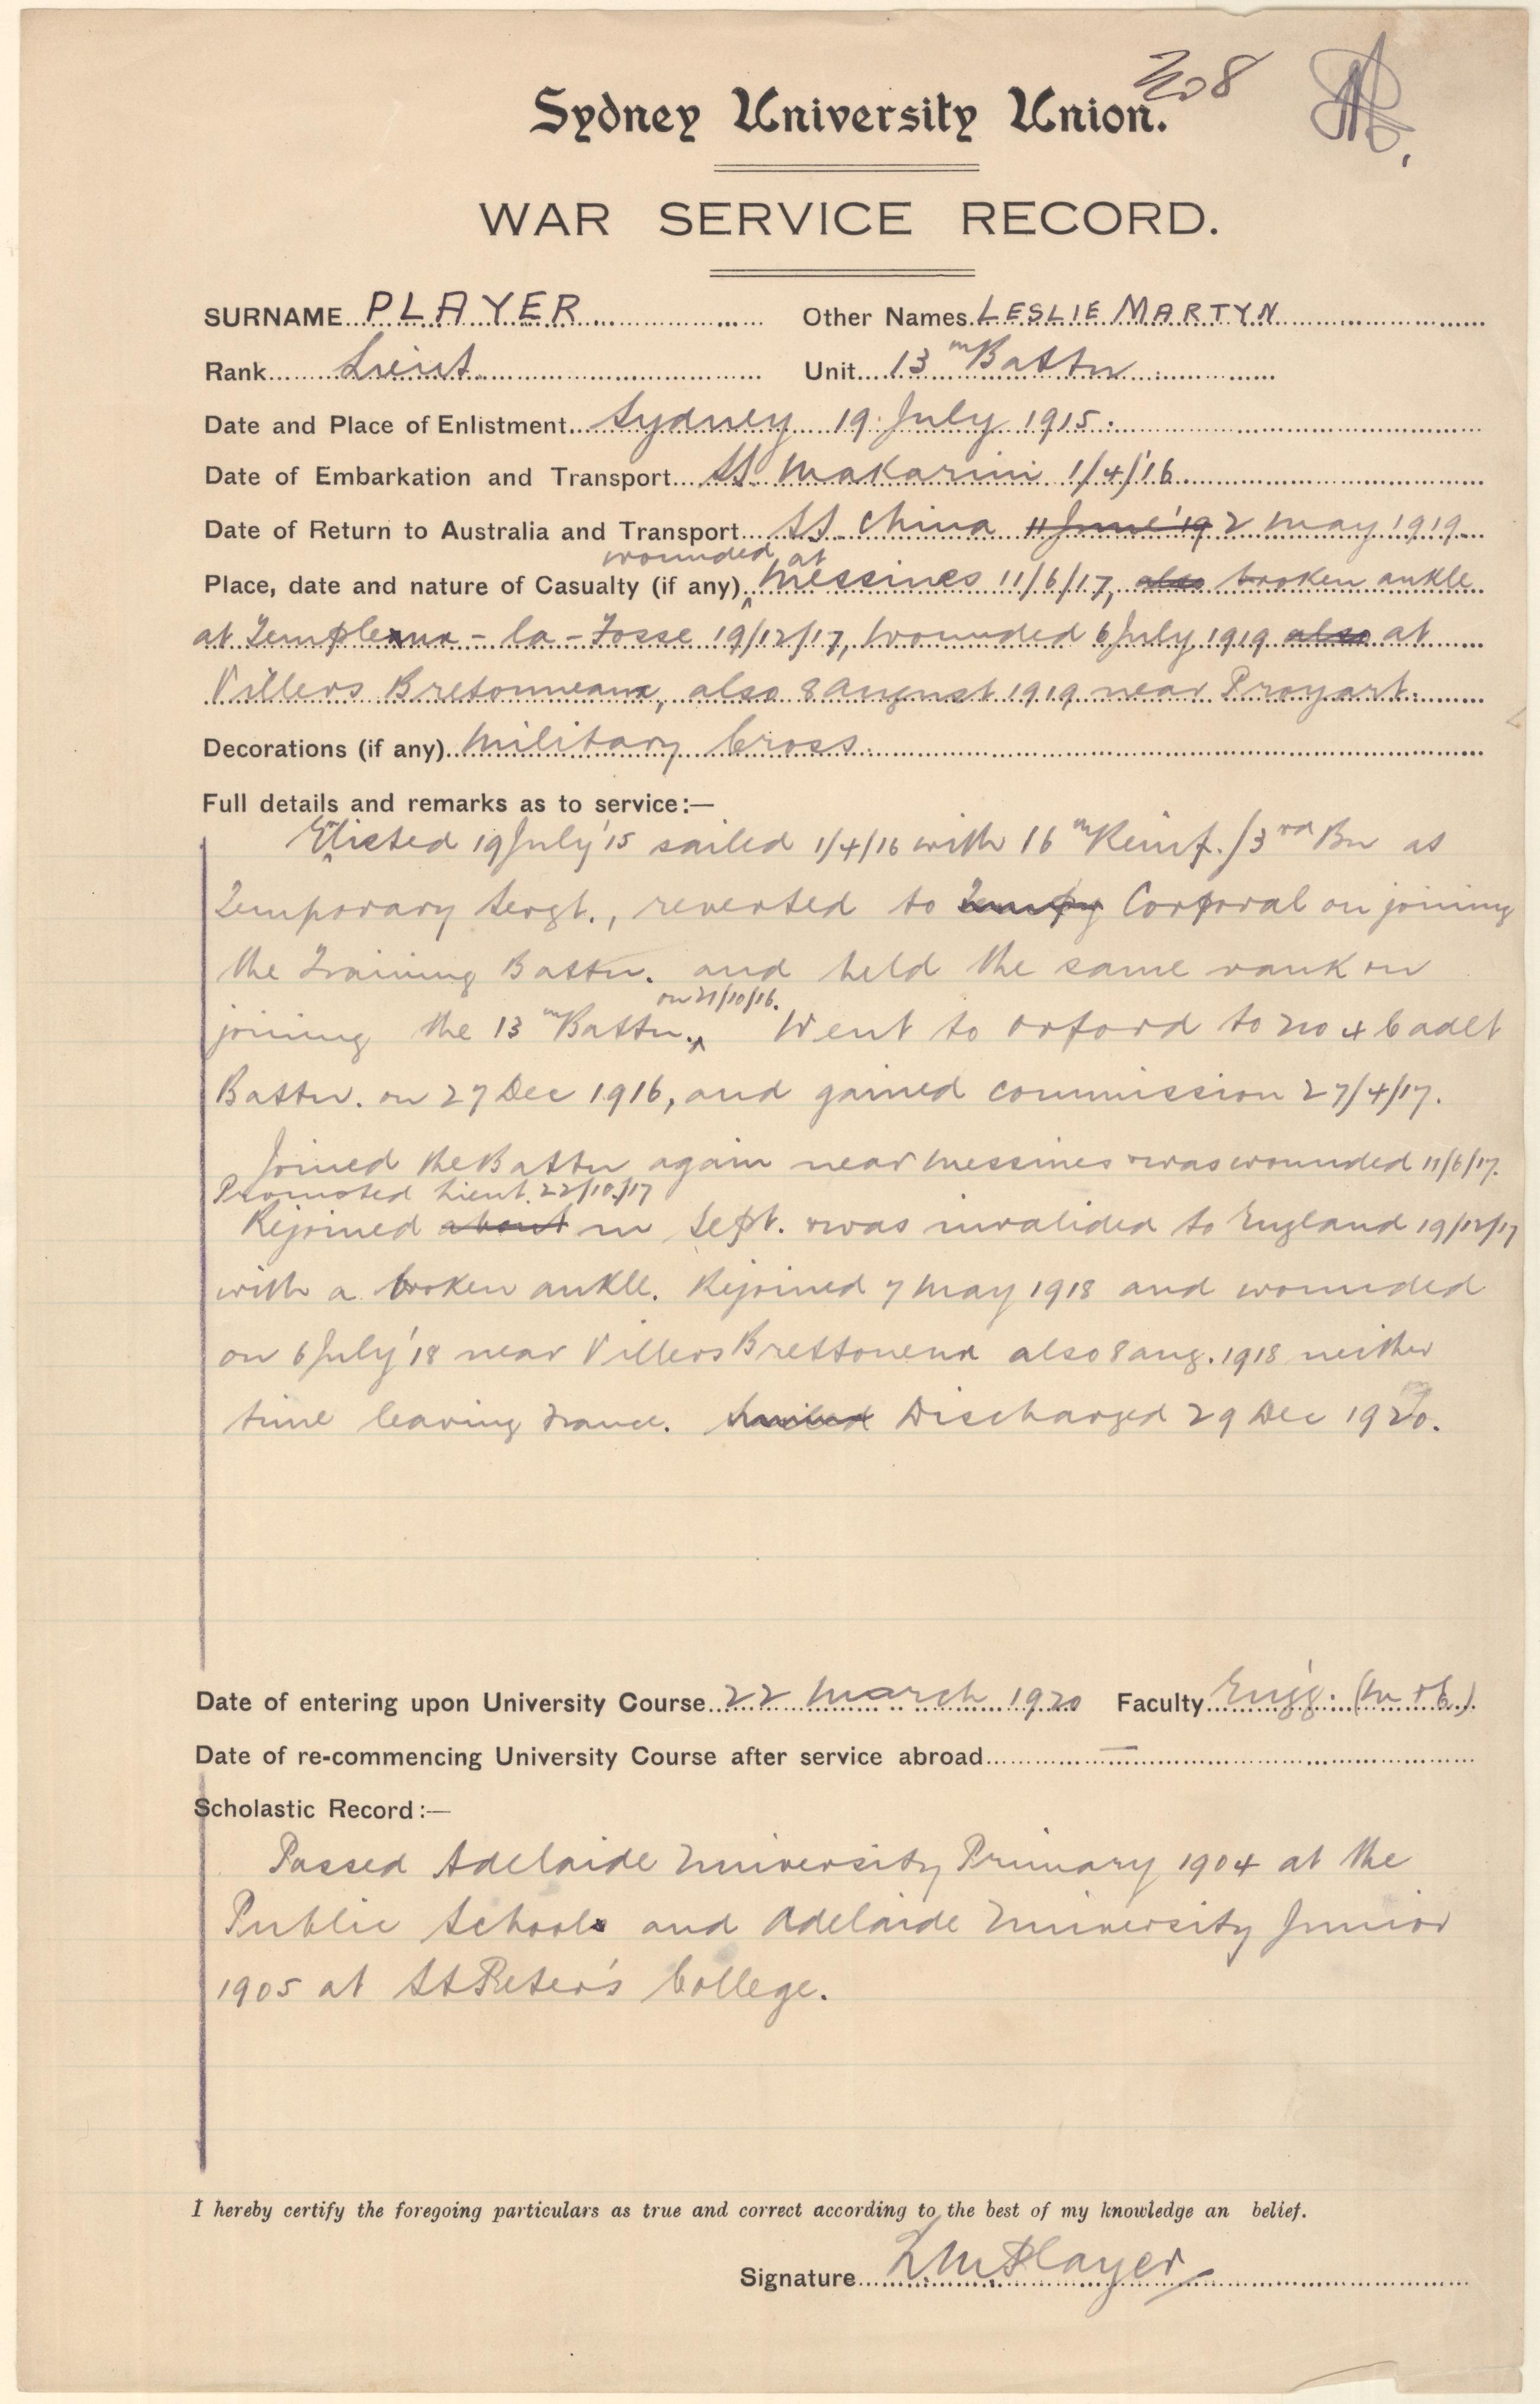 No 8
Sydney University Union.
WAR SERVICE RECORD.
SURNAME PLAYER Other Names LESLIE MARTYN
Rank Lieut. Unit 13th Battn
Date and Place of Enlistment Sydney 19 July 1915.
Date of Embarkation and Transport SS Makarini 1/4/'16
Date of Return to Australia and Transport SS China 11 June '19 2 May 1919
wounded at
Place, date and nature of Casualty (if any) Messines 11/6/17, also broken ankle
at Templeaux-la-Fosse 19/12/17, Wounded 6 July 1919 also at
Villers Bretonneaux, also 8 August 1919 near Proyart.
Decorations (if any) Military Cross.
Full details and remarks as to service:—
Elisted 19 July '15 sailed 1/4/16 with 16th Reinf./3rd Bn as
Temporary Sergt., reverted to Tempy Corporal on joining
the Training Battn. and held the same rank on
on 21/10/16.
joining the 13th Battn. Went to Oxford to No 4 Cadet
Battn. on 27 Dec 1916, and gained commission 27/4/17.
Joined the Battn again near Messines & was wounded 11/6/17.
Promoted Lieut. 22/10/17
Rejoined about in Sept. & was invalided to England 19/12/17
with a broken ankle. Rejoined 7 May 1918 and wounded
on 6 July '18 near Villers Brettoneux also 8 Aug. 1918 neither
time leaving France. Sailed Discharged 29 Dec 1920.
Date of entering upon University Course 22 March 1920 Faculty Eng'g. (M & E.).
Date of re-commencing University Course after service abroad —
Scholastic Record:—
Passed Adelaide University Primary 1904 at the
Public Schools and Adelaide University Junior
1905 at St Peter's College.
I hereby certify the foregoing particulars as true and correct according to the best of my knowledge an belief.
Signature L M Player